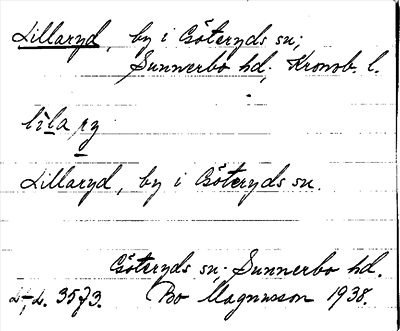 Lillaryd, by i Göteryds sn;
Sunnerbo hd; Kronob. l.
lila ry
Lillaryd, by i Göteryds sn.
Göteryds sn; Sunnerbo hd.
3573. Bo Magnusson 1938.